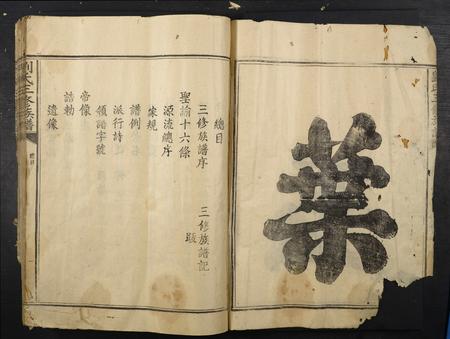 業
總目
三修族譜序 三修族譜記
聖諭十六條 跋
源流總序
家規
譜例
派行詩
領譜字號
帝像
誥勅
遺像
劉氏三修族譜